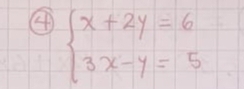 ④ { x + 2y = 6
3x - y = 5